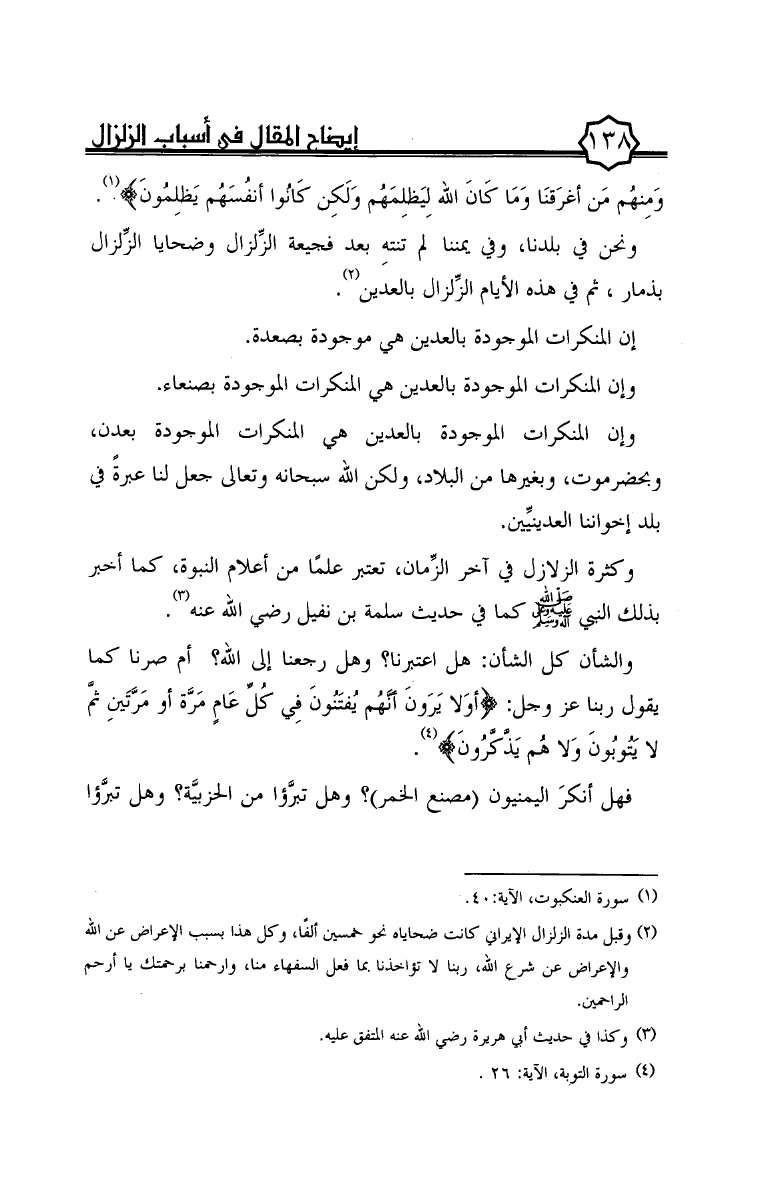 ١٣٨
إيضاح المقال في أسباب الزلزال
وَمِنهُم مَن أغرَقنَا وَمَا كَانَ الله لِيَظلِمَهُم وَلَكِن كَانُوا أنفُسَهُم يَظلِمُونَ﴾(١).
ونحن في بلدنا، وفي يمننا لم تنتهِ بعد فجيعة الزِّلزال وضحايا الزِّلزال
بذمار ، ثم في هذه الأيام الزِّلزال بالعدين(٢).
إن المنكرات الموجودة بالعدين هي موجودة بصعدة.
وإن المنكرات الموجودة بالعدين هي المنكرات الموجودة بصنعاء.
وإن المنكرات الموجودة بالعدين هي المنكرات الموجودة بعدن،
وبحضرموت، وبغيرها من البلاد، ولكن الله سبحانه وتعالى جعل لنا عبرةً في
بلد إخواننا العدينيِّين.
وكثرة الزلازل في آخر الزَّمان، تعتبر علمًا من أعلام النبوة، كما أخبر
بذلك النبي ﷺ كما في حديث سلمة بن نفيل رضي الله عنه(٣).
والشأن كل الشأن: هل اعتبرنا؟ وهل رجعنا إلى الله؟ أم صرنا كما
يقول ربنا عز وجل: ﴿أوَلا يَرَونَ أنَّهُم يُفتَنُونَ فِي كُلِّ عَامٍ مَرَّة أو مَرَّتَينِ ثمَّ
لا يَتُوبُونَ وَلا هُم يَذَّكَّرُونَ﴾(٤).
فهل أنكرَ اليمنيون (مصنع الخمر)؟ وهل تبرَّؤا من الحزبيَّة؟ وهل تبرَّؤا
(١) سورة العنكبوت، الآية:٤٠.
(٢) وقبل مدة الزلزال الإيراني كانت ضحاياه نحو خمسين ألفًا، وكل هذا بسبب الإعراض عن الله
والإعراض عن شرع الله، ربنا لا تؤاخذنا بما فعل السفهاء منا، وارحمنا برحمتك يا أرحم
الراحمين.
(٣) وكذا في حديث أبي هريرة رضي الله عنه المتفق عليه.
(٤) سورة التوبة، الآية: ٢٦ .